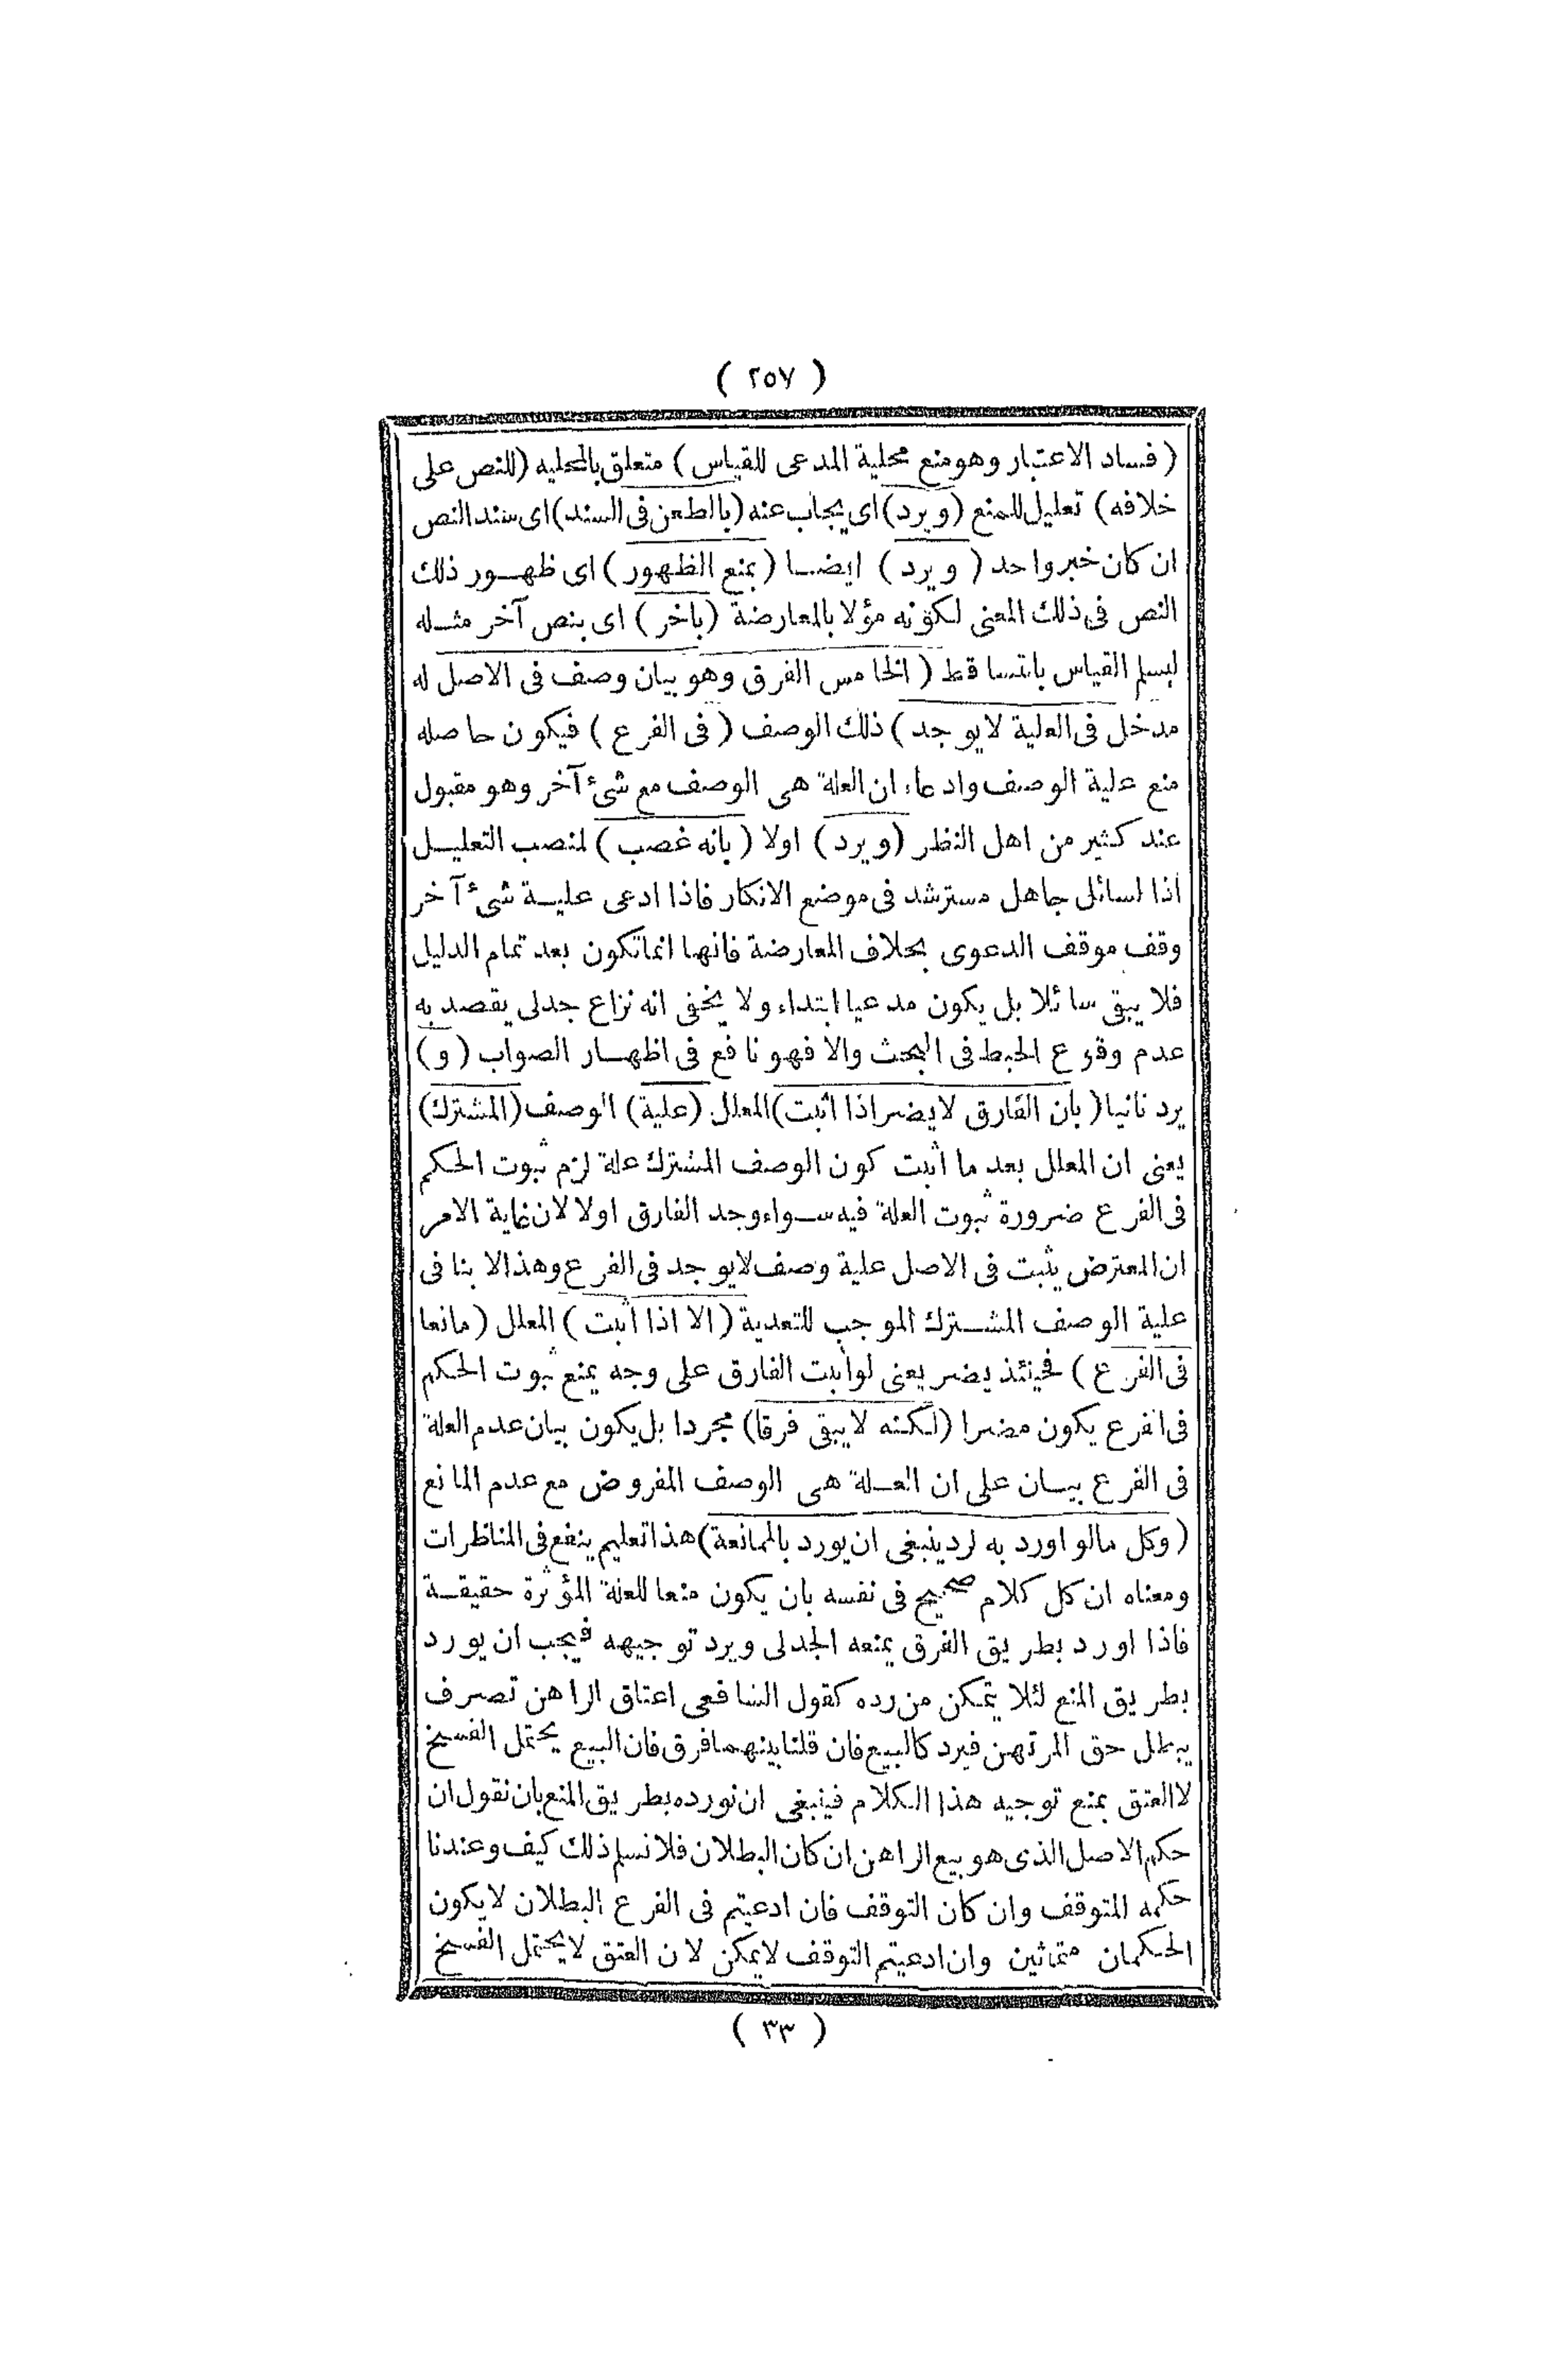 ( ٢٥٧ )
( فساد الاعتبار وهو منع محلية المدعى للقياس ) متعلق بالمحليه ( للنص على
خلافه ) تعليل للمنع ( ويرد ) اى يجاب عنه ( بالطعن فى السند ) اى سند النص
ان كان خبر واحد ( ويرد ) ايضا ( بمنع الظهور ) اى ظهور ذلك
النص فى ذلك المعنى لكونه مؤلا بالمعارضة ( باخر ) اى بنص آخر مثله
ليسلم القياس بالتساقط ( الخامس الفرق وهو بيان وصف فى الاصل له
مدخل فى العلية لا يوجد ) ذلك الوصف ( فى الفرع ) فيكون حاصله
منع علية الوصف وادعاء ان العلة هى الوصف مع شئ آخر وهو مقبول
عند كثير من اهل النظر ( ويرد ) اولا ( بانه غصب ) لمنصب التعليل
اذا لسائل جاهل مسترشد فى موضع الانكار فاذا ادعى علية شئ آخر
وقف موقف الدعوى بخلاف المعارضة فانها انما تكون بعد تمام الدليل
فلا يبقى سائلا بل يكون مدعيا ابتداء ولا يخفى انه نزاع جدلى يقصد به
عدم وقوع الخبط فى البحث والا فهو نافع فى اظهار الصواب ( و )
يرد ثانيا ( بان الفارق لا يضر اذا اثبت ) المعلل ( علية ) الوصف ( المشترك )
يعنى ان المعلل بعد ما اثبت كون الوصف المشترك علة لزم ثبوت الحكم
فى الفرع ضرورة ثبوت العلة فيه سواء وجد الفارق اولا لان غاية الامر
ان المعترض يثبت فى الاصل علية وصف لا يوجد فى الفرع وهذا لا ينافى
علية الوصف المشترك الموجب للتعدية ( الا اذا اثبت ) المعلل ( مانعا
فى الفرع ) فحينئذ يضر يعنى لو اثبت الفارق على وجه يمنع ثبوت الحكم
فى الفرع يكون مضرا ( لكنه لا يبقى فرقا ) مجردا بل يكون بيان عدم العلة
فى الفرع بيان على ان العلة هى الوصف المفروض مع عدم المانع
( وكل ما لو اورد به لرد ينبغى ان يورد بالممانعة ) هذا تعليم ينفع فى المناظرات
ومعناه ان كل كلام صحيح فى نفسه بان يكون منعا للعلة المؤثرة حقيقة
فاذا اورد بطريق الفرق يمنعه الجدلى ويرد توجيهه فيجب ان يورد
بطريق المنع لئلا يتمكن من رده كقول الشافعى اعتاق الراهن تصرف
يبطل حق المرتهن فيرد كالبيع فان قلنا بينهما فرق فان البيع يحتمل الفسخ
لا العتق يمنع توجيه هذا الكلام فينبغى ان نورده بطريق المنع بان نقول ان
حكم الاصل الذى هو بيع الراهن ان كان البطلان فلا نسلم ذلك كيف وعندنا
حكمه التوقف وان كان التوقف فان ادعيتم فى الفرع البطلان لا يكون
الحكمان متماثلين وان ادعيتم التوقف لا يمكن لان العتق لا يحتمل الفسخ
( ٣٣ )